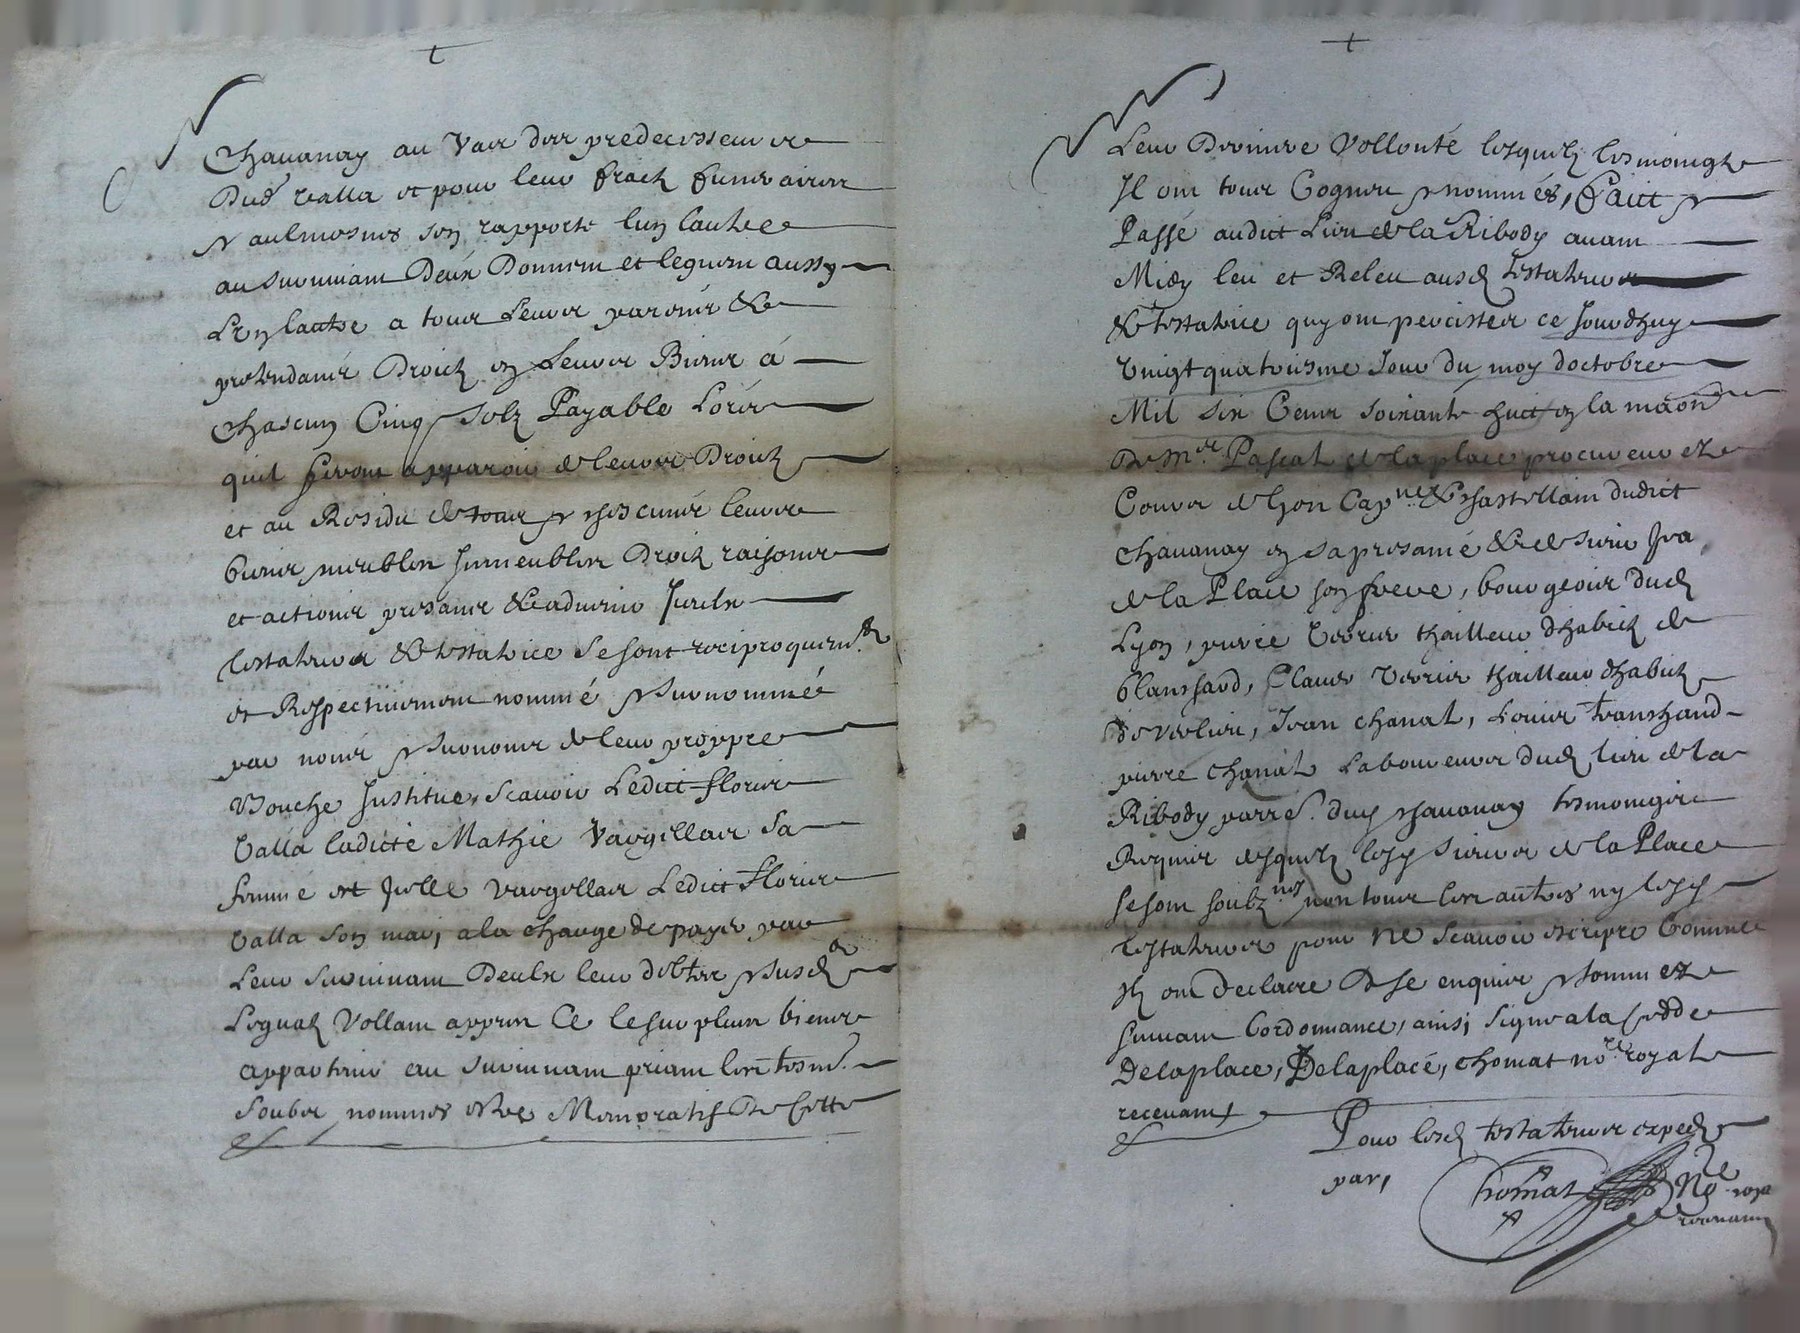 Chavanay au vas des predecesseurs
Dud. Valla et pour leurs fraictz funeraires
& aulmosnes sen rapporte lun lautre
au survivant Deux Donnent et leguent aussy
Lun lautre a tous Leurs parens &
pretendants Droictz en Leurs Biens á
chascun Cinq solz Payable Lors
quil feront apparoir de leurs Droictz
et au Residu de tous & chescuns leurs
biens meubles Immeubles Droictz raisons
et actions presans & advenir Iceulx
testateur & testatrice se sont reciproquem.t
et Respectivement nommé & surnommé
par noms & surnoms de leur proppre
Bouche Institue, scavoir Ledict Floris
Valla ladicte Mathie Vargillas sa
femme et Icelle Vargillas Ledict Floris
Valla son mari a la charge de payer par
Leur survivant Deulx leurs debtes & susd.
Legatz Vollant appres Ce le surplus biens
appartenir au survivant priant les tesm.
soubs nommes estre Memoratifz De Cette
Leur Derniere Vollonté lesquelz tesmoingtz
Il ont tous Cogneu & nommés, Faict &
Passé audict Lieu de la Ribody avant
Midy leu et Releu ausd. testateur
& testatrice quy ont percister ce Jourdhuy
vingt quatriesme Jour du moy doctobre
Mil six Cents soixante huict en la maon
De m.re Pascal de la place procureur ez
Cours de Lyon Cap.ne & Chastellain dudict
Chavanay en sa presance & de sieur Jea
de la Place son frere, bourgeois dud.
Lyon, pierre Verrier thailleur dhabitz de
blanchard, Claude Verrier thailleur dhabitz
de Verlieu, Jean Chanal, Louis Franchand
pierre Chanal Laboureurs dud. lieu de la
Ribody parr.e dud. Chavanay tesmoings
Requis desquelz lesd. sieurs de la Place
se sont soubz.nés non tous les autres ny lesd.
testateurs pour ne scavoir escripre Comme
Ilz ont declaire De ce enquis & sommez
suivant Lordonnance, ainsi signe a la cedde
Delaplace, Delaplace, Chomat no.re royal
recevant
Pour lesd. testateurs exped.
par,
Chomat No.re roya
recevant